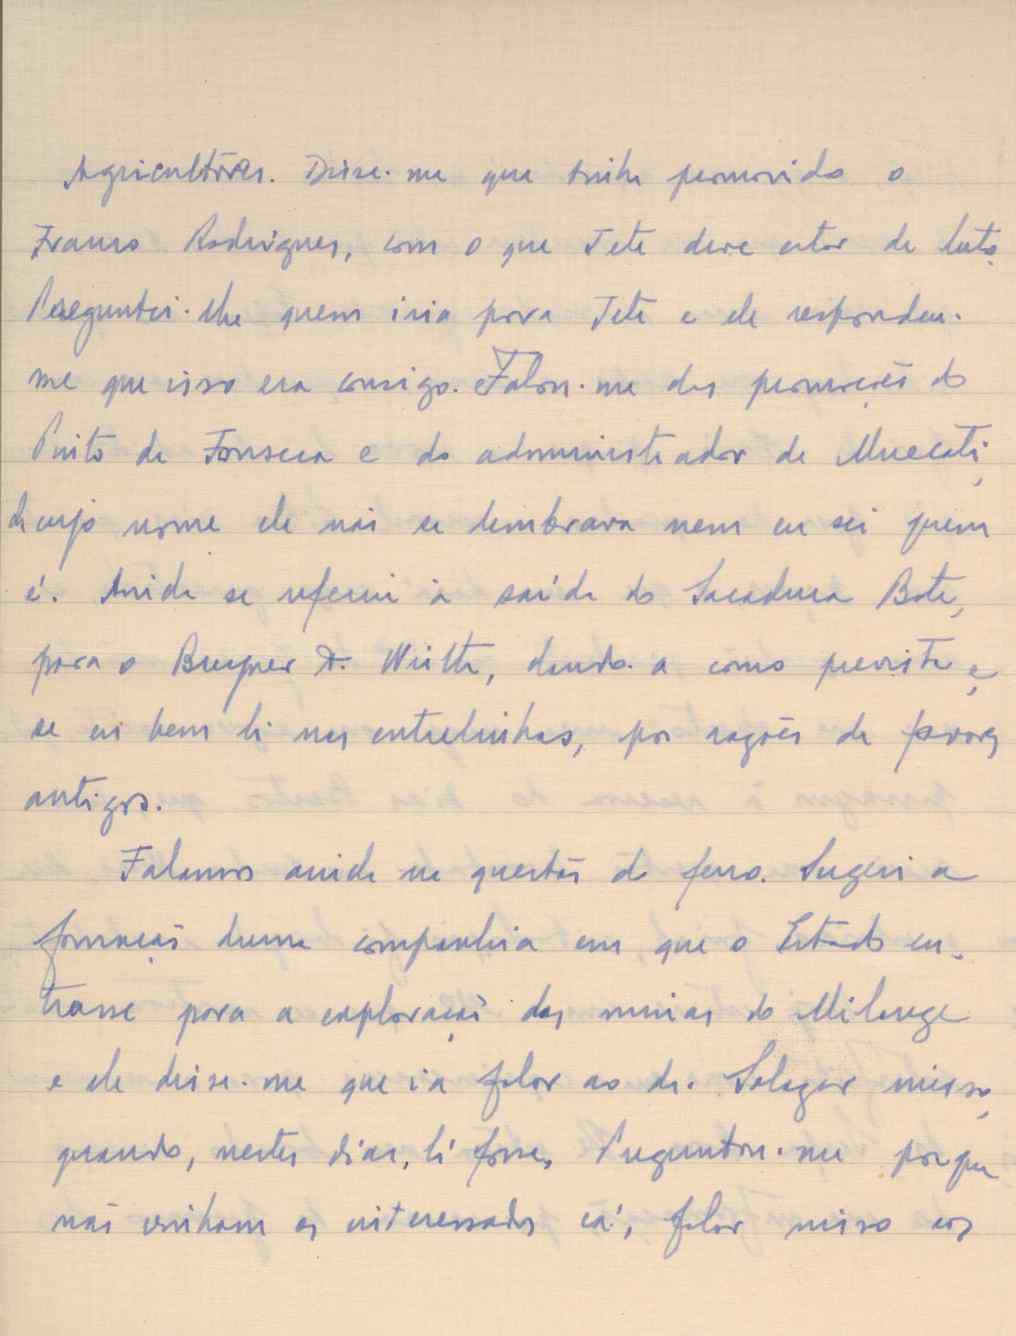 Agricultores. Disse-me que tinha promovido o
Franco Rodrigues, com o que Tete deve estar de luto.
Perguntei-lhe quem iria para Tete e ele respondeu-
me que isso era consigo. Falou-me das promoções do
Pinto da Fonseca e do administrador de Mucati,
de cujo nome ele não se lembrava nem eu sei quem
é. Ainda se referiu à saída do Sacadura Bote,
para o Breyner & Wirth, dando-a como prevista e,
se eu bem li nas entrelinhas, por razões de favores
antigos.
Falamos ainda na questão do ferro. Sugeri a
formação duma companhia em que o Estado en-
trasse para a exploração das minas do Milange
e ele disse-me que ia falar ao dr. Salazar nisso,
quando, nestes dias, lá fosse. Preguntou-me porque
não vinham os interessados cá, falar nisso aos